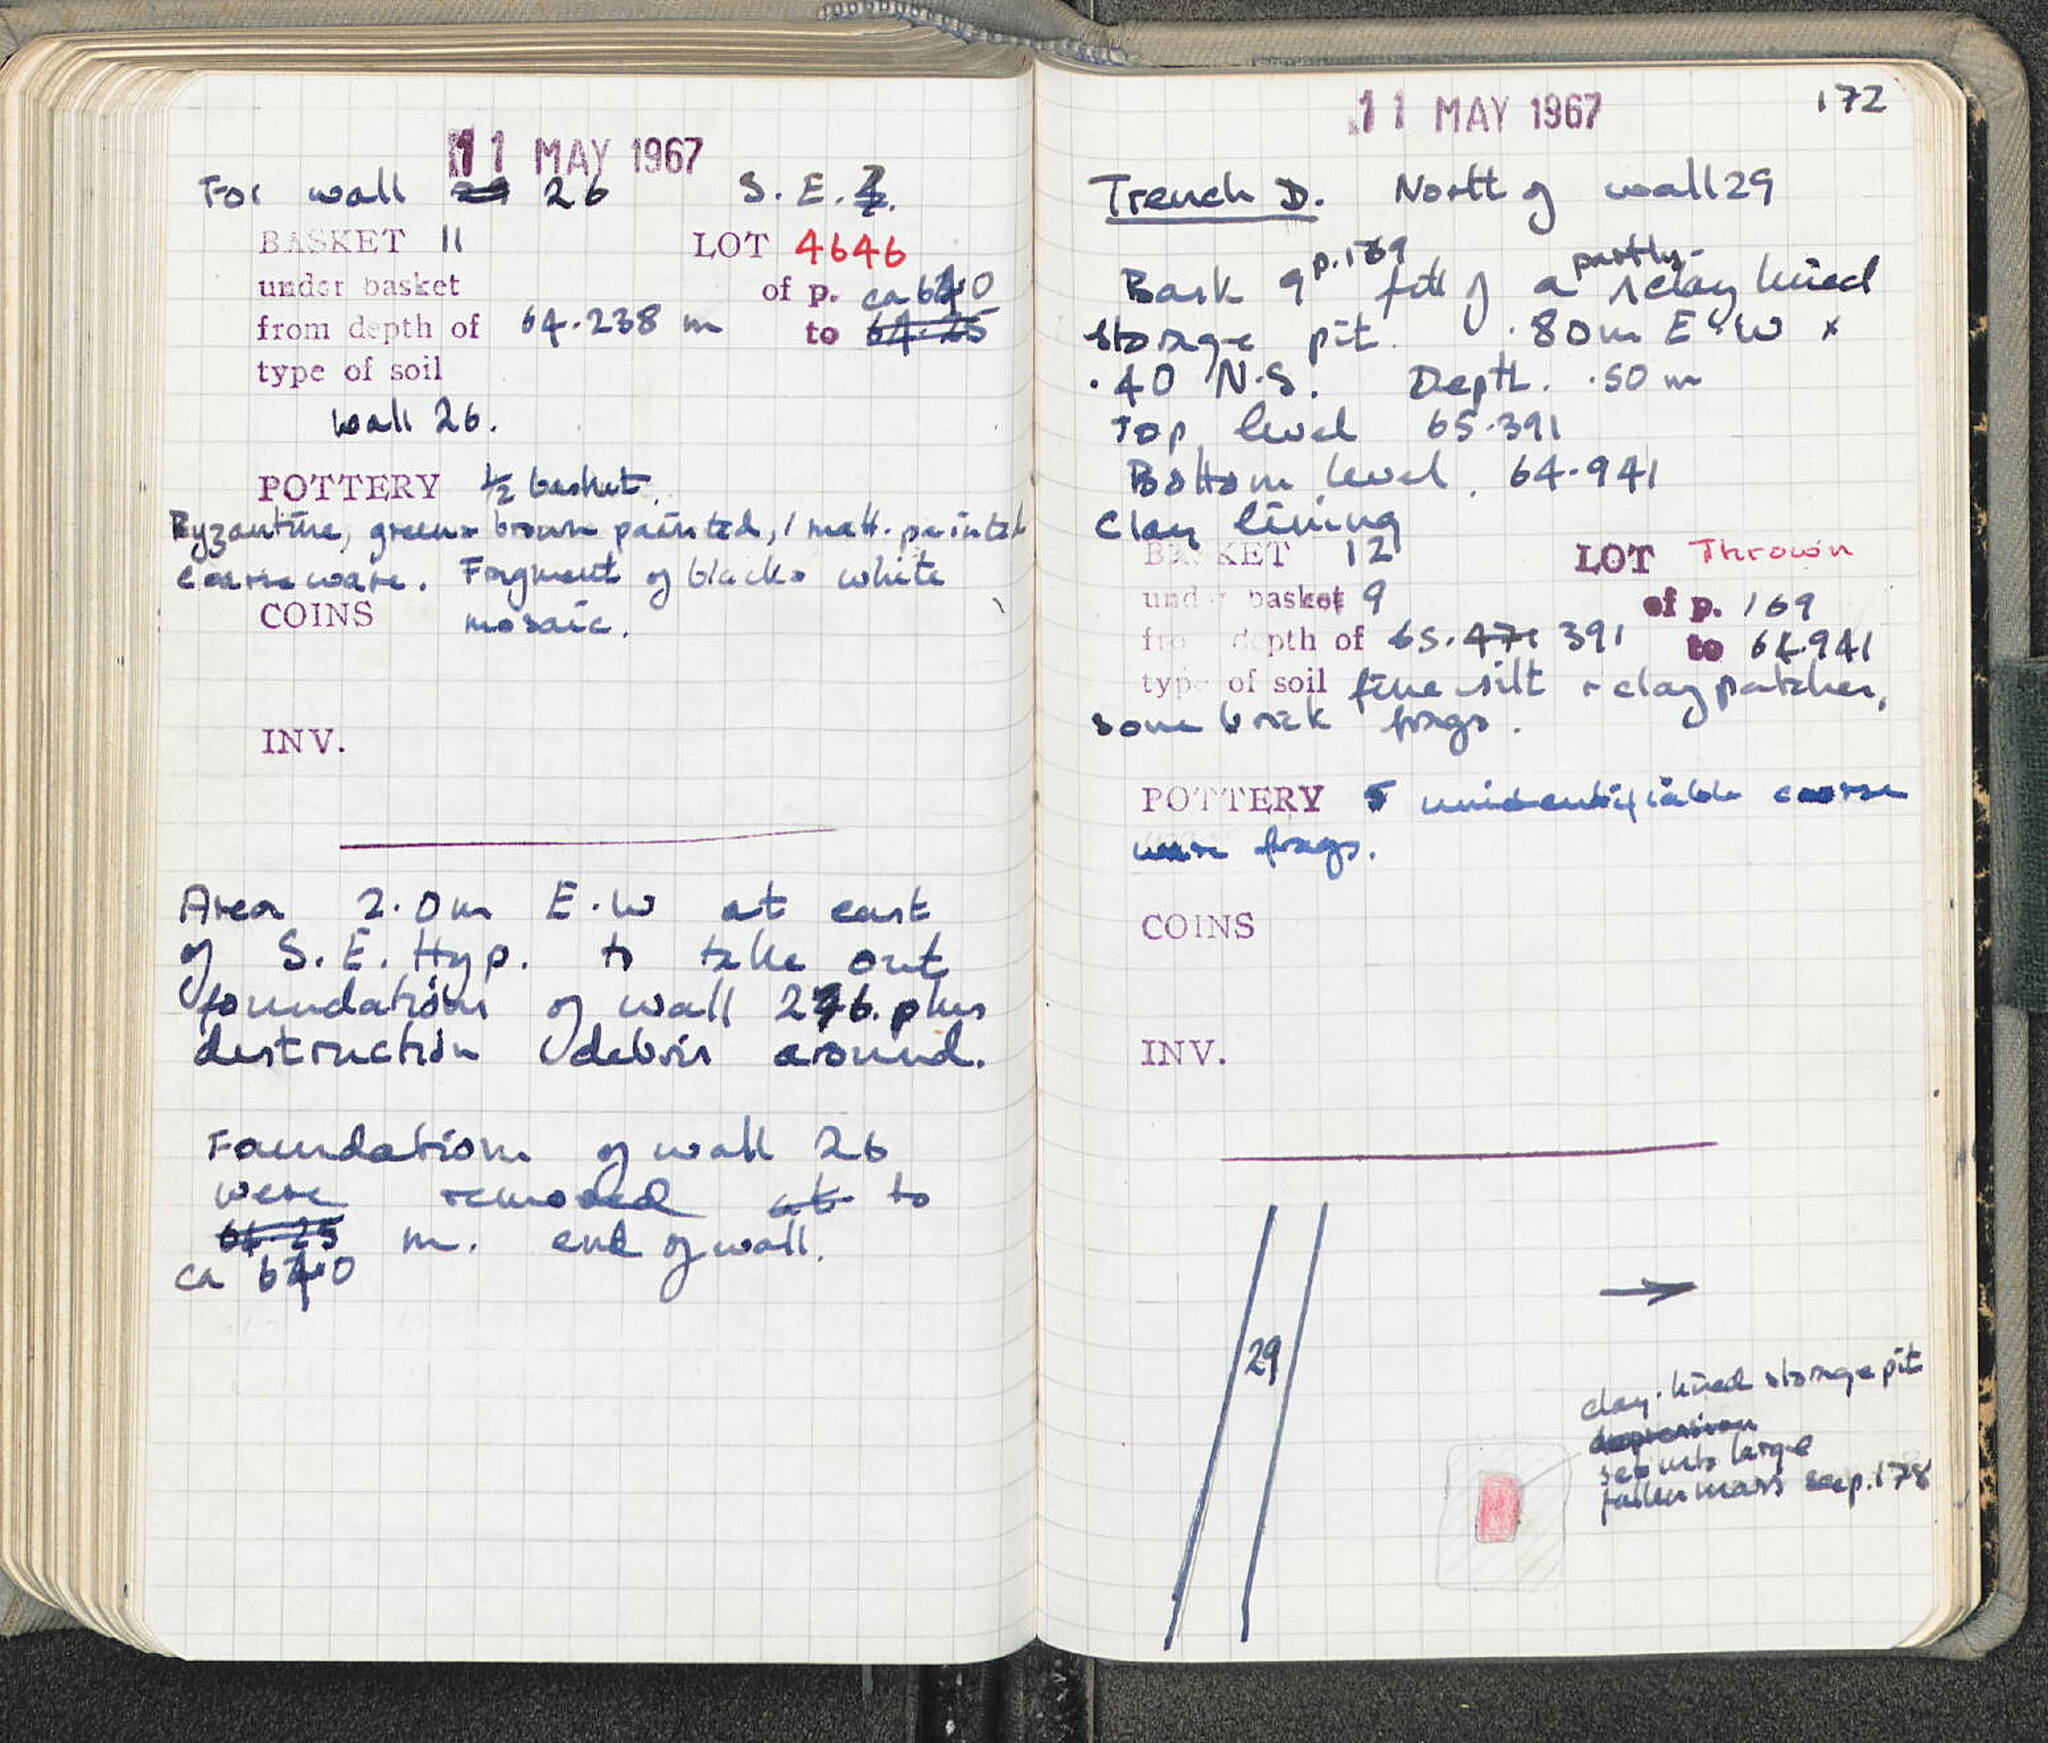 11 MAY 1967
For wall 26 S.E.
BASKET 11 LOT 4646
under basket of p. ca
from depth of 64.238 m to 64.25
type of soil
wall 26.
POTTERY 1/2 basket.
Byzantine, green + brown painted, 1 matt-painted
coarse ware. Fragment of black + white
COINS mosaic.
INV.
Area 2.0m E.W at east
of S.E. Hyp. to take out
foundations of wall 26 plus
destruction debris around.
Foundations of wall 26
were removed at to
64.25 m. end of wall.
ca
11 MAY 1967 172
Trench D. North of wall 29
Bask 9 p.169 fill of a partly clay lined
storage pit. .80m E-W x
.40 N.S. Depth. .50 m
Top level 65.391
Bottom level. 64.941
Clay lining
BASKET 12 LOT Thrown
under basket 9 of p. 169
from depth of 65.471 391 to 64.941
type of soil fine silt + clay patches,
some brick frags.
POTTERY 5 unidentifiable coarse
ware frags.
COINS
INV.
29
clay-lined storage pit
depression
set into large
fallen mass see p.178